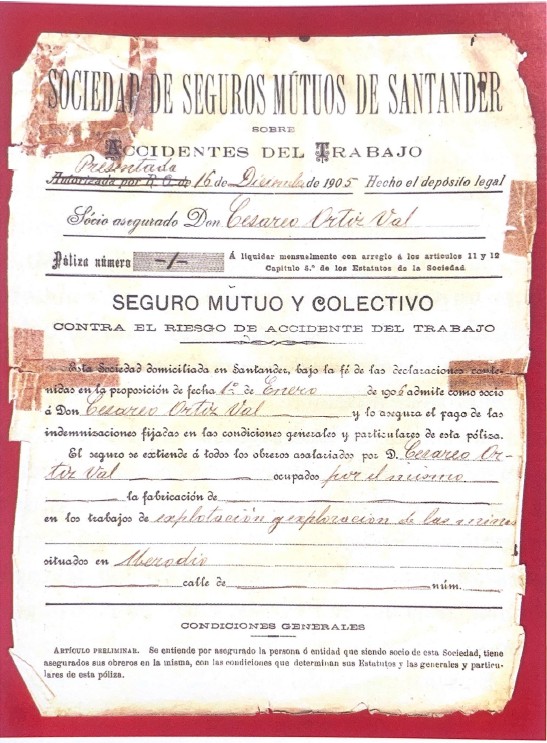 SOCIEDAD DE SEGUROS MÚTUOS DE SANTANDER
SOBRE
ACCIDENTES DEL TRABAJO
Presentada
Autorizada por R. O. de 16 de Diciembre de 1905 Hecho el depósito legal
Sócio asegurado Don Cesareo Ortiz Val
Póliza número -1- Á liquidar mensualmente con arreglo á los artículos 11 y 12
Capítulo 5.º de los Estatutos de la Sociedad.
SEGURO MÚTUO Y COLECTIVO
CONTRA EL RIESGO DE ACCIDENTE DEL TRABAJO
Esta Sociedad domiciliada en Santander, bajo la fé de las declaraciones conte-
nidas en la proposición de fecha 1º de Enero de 1906 admite como socio
á Don Cesareo Ortiz Val y le asegura el pago de las
indemnizaciones fijadas en las condiciones generales y particulares de esta póliza.
El seguro se extiende á todos los obreros asalariados por D. Cesareo Or-
tiz Val ocupados por el mismo
la fabricación de
en los trabajos de explotación y exploracion de las minas
situados en Merodio
calle de núm.
CONDICIONES GENERALES
ARTÍCULO PRELIMINAR. Se entiende por asegurado la persona ó entidad que siendo socio de esta Sociedad, tiene
asegurados sus obreros en la misma, con las condiciones que determinan sus Estatutos y las generales y particu-
lares de esta póliza.